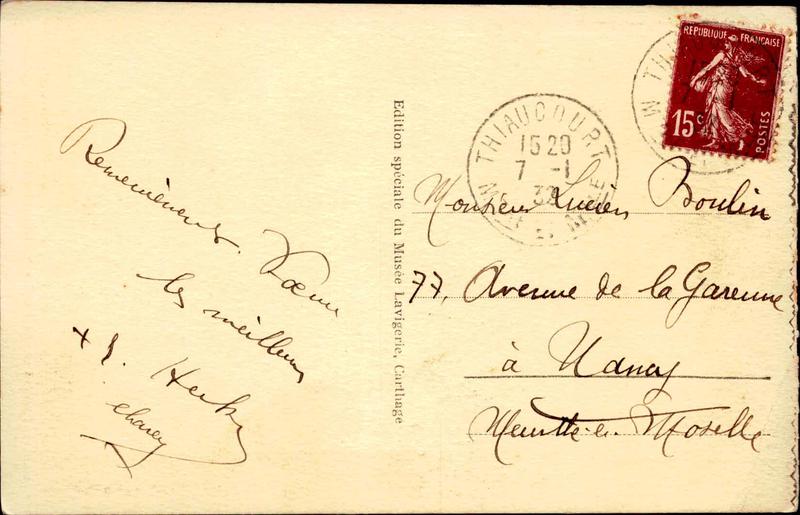 Remerciements. Vœux
les meilleurs
+ J. Herky
charey
Edition spéciale du Musée Lavigerie, Carthage
THIAUCOURT
15 20
7 - 1
32
Mthe ET MLLE
REPUBLIQUE FRANÇAISE
15c
POSTES
Monsieur Lucien Boulin
77, Avenue de la Garenne
à Nancy
Meurthe-et-Moselle